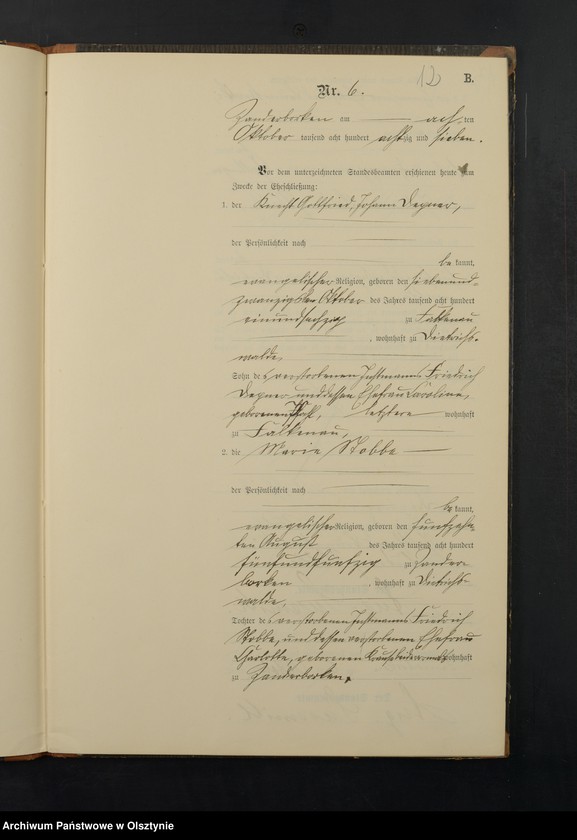 12
B.
Nr. 6.
Zanderborken am acht ten
Oktober tausend acht hundert achtzig und sieben.
Vor dem unterzeichneten Standesbeamten erschienen heute zum
Zwecke der Eheschließung:
1. der Knecht Gottfried, Johann Degner,
der Persönlichkeit nach
be kannt,
evangelischer Religion, geboren den siebenund-
zwanzigsten Oktober des Jahres tausend acht hundert
einundsechzig zu Falkenau
, wohnhaft zu Dietrichs-
walde,
Sohn des verstorbenen Instmanns Friedrich
Degner und dessen Ehefrau Caroline,
geborenen letztere wohnhaft
zu Falkenau,
2. die Marie Stobbe
der Persönlichkeit nach
be kannt,
evangelischer Religion, geboren den fünfzehn-
ten August des Jahres tausend acht hundert
fünfundfünfzig zu Zander-
borken , wohnhaft zu Dietrichs-
walde,
Tochter des verstorbenen Instmanns Friedrich
Stobbe, und dessen verstorbenen Ehefrau
Charlotte, geborenen wohnhaft
zu Zanderborken.
Archiwum Państwowe w Olsztynie